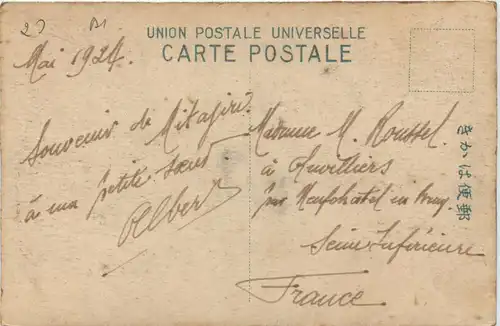 23 B1
UNION POSTALE UNIVERSELLE
CARTE POSTALE
Mai 1924.
Souvenir de Mitajiri
à ma petite sœur
Albert
Madame M. Roussel.
à Auvilliers
par Neufchatel en Bray
Seine-Inférieure
France
きかは便郵